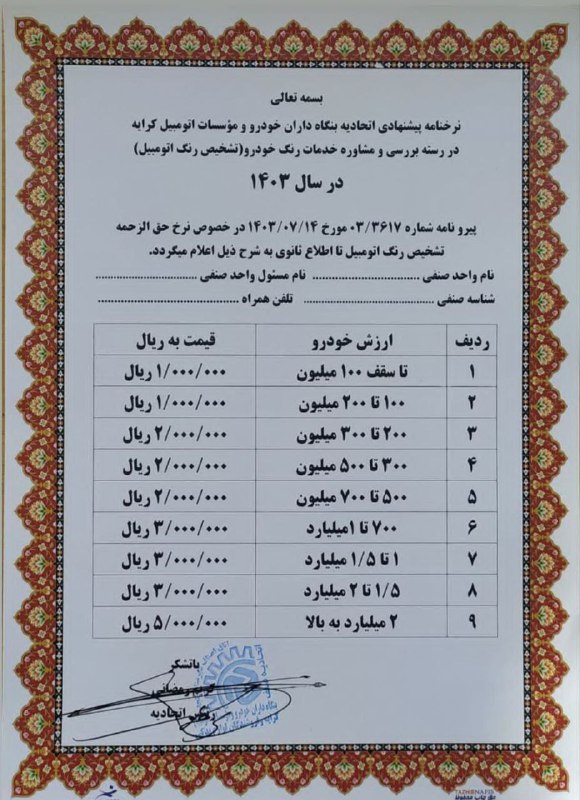 بسمه تعالی
نرخنامه پیشنهادی اتحادیه بنگاه داران خودرو و مؤسسات اتومبیل کرایه
در رسته بررسی و مشاوره خدمات رنگ خودرو(تشخیص رنگ اتومبیل)
در سال ۱۴۰۳
پیرو نامه شماره ۰۳/۳۶۱۷ مورخ ۱۴۰۳/۰۷/۱۴ در خصوص نرخ حق الزحمه
تشخیص رنگ اتومبیل تا اطلاع ثانوی به شرح ذیل اعلام میگردد.
نام واحد صنفی ........................ نام مسئول واحد صنفی ........................
شناسه صنفی ........................ تلفن همراه ........................
ردیف ارزش خودرو قیمت به ریال
۱ تا سقف ۱۰۰ میلیون ۱/۰۰۰/۰۰۰ ریال
۲ ۱۰۰ تا ۲۰۰ میلیون ۱/۰۰۰/۰۰۰ ریال
۳ ۲۰۰ تا ۳۰۰ میلیون ۲/۰۰۰/۰۰۰ ریال
۴ ۳۰۰ تا ۵۰۰ میلیون ۲/۰۰۰/۰۰۰ ریال
۵ ۵۰۰ تا ۷۰۰ میلیون ۲/۰۰۰/۰۰۰ ریال
۶ ۷۰۰ تا ۱میلیارد ۳/۰۰۰/۰۰۰ ریال
۷ ۱ تا ۱/۵ میلیارد ۳/۰۰۰/۰۰۰ ریال
۸ ۱/۵ تا ۲ میلیارد ۳/۰۰۰/۰۰۰ ریال
۹ ۲ میلیارد به بالا ۵/۰۰۰/۰۰۰ ریال
باتشکر
رمضانی
اتحادیه
TAZHIBNAFIS